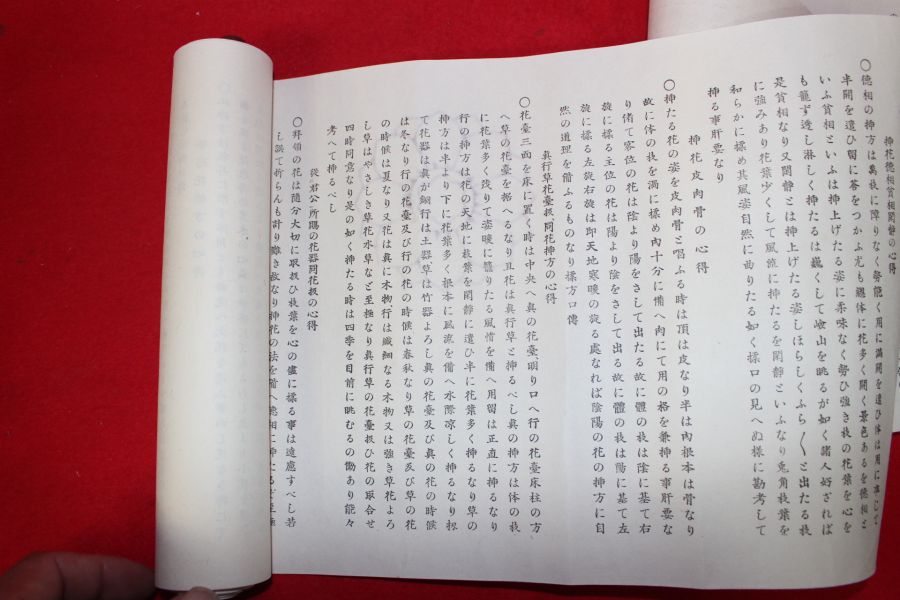 挿花德相貧相閑靜の心得
〇德相の挿方は萬枝に障りなく勢能く用に滿開を遣ひ体は用に准じて
半開を遣ひ留に莟をつかふ尤も總体に花多く開く景色あるを德相と
いふ貧相といふは挿上げたる姿に柔味なく勢ひ強き枝の花葉を心を
も籠ず透し淋しく挿たるは巍くして嶮山を眺るが如く諸人好ざれば
是貧相なり又閑靜とは挿上げたる姿しほらしくふら〱と出たる枝
に強みあり花葉少くして風流に挿たるを閑靜といふなり兎角枝葉を
和らかに揉め其風姿自然に曲りたる如く揉口の見へぬ樣に勘考して
挿る事肝要なり
挿花皮肉骨の心得
〇挿たる花の姿を皮肉骨と唱ふる時は頂は皮なり半は肉根本は骨なり
故に体の枝を滿に揉め肉十分に備へ肉にて用の格を兼挿る事肝要な
り偖て客位の花は陰より陽をさして出たる故に體の枝は陰に基て右
旋に揉る主位の花は陽より陰をさして出る故に體の枝は陽に基て左
旋に揉る左旋右旋は即天地寒暖の旋る處なれば陰陽の花の挿方に自
然の道理を備ふるものなり揉方口傳
眞行草花臺扱同花挿方の心得
〇花臺三面を床に置く時は中央へ眞の花臺、明り口へ行の花臺床柱の方
へ草の花臺を居へるなり且花は眞行草と挿るべし眞の挿方は体の枝
に花葉多く茂りて姿暖に籠りたる風情を備へ用留は正直に挿るなり
行の挿方は花の天地に枝葉を閑靜に遣ひ半に花葉多く挿るなり草の
挿方は半より下に花葉多く根本に風流を備へ水際凉しく挿るなり扨
て花器は眞が銅行は土器、草は竹器よろし眞の花臺及び眞の花の時候
は冬なり行の花臺及び行の花の時候は春秋なり草の花臺及び草の花
の時候は夏なり又花は眞に木物行は纎細なる木物又は強き草花よろ
し草はやさしき草花水草など至極なり眞行草の花臺扱ひ花の取合せ
四時同意なり是の如く挿たる時は四季を目前に眺むるの働あり能々
考へて挿るべし
從君公所賜の花器同花扱の心得
〇拜領の花は隨分大切に取扱ひ枝葉を心の儘に揉る事は遠慮すべし若
し誤て折らんも計り難き故なり挿花の法を備へ